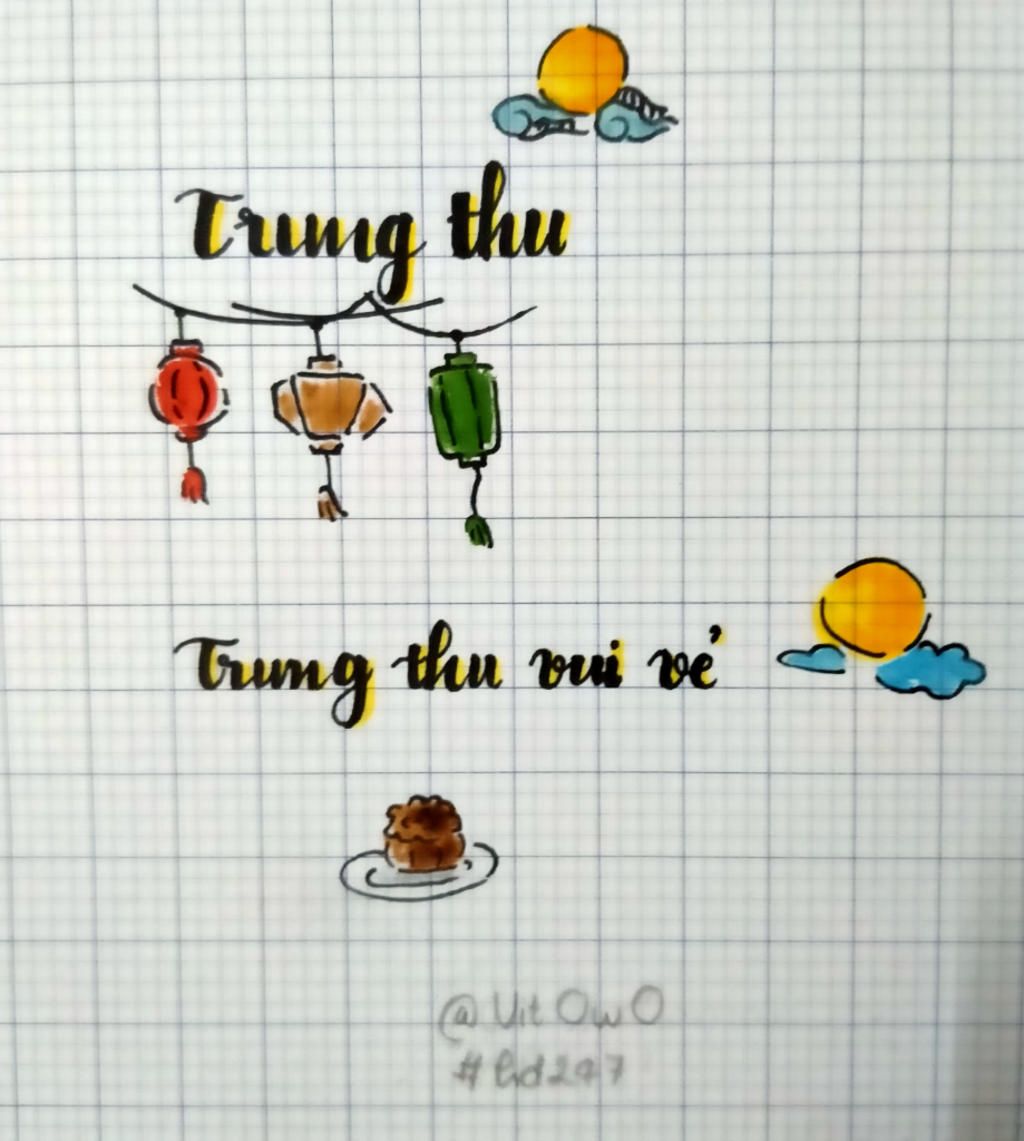 Trung thu
Trung thu vui vẻ
@Vit OwO
#hd247